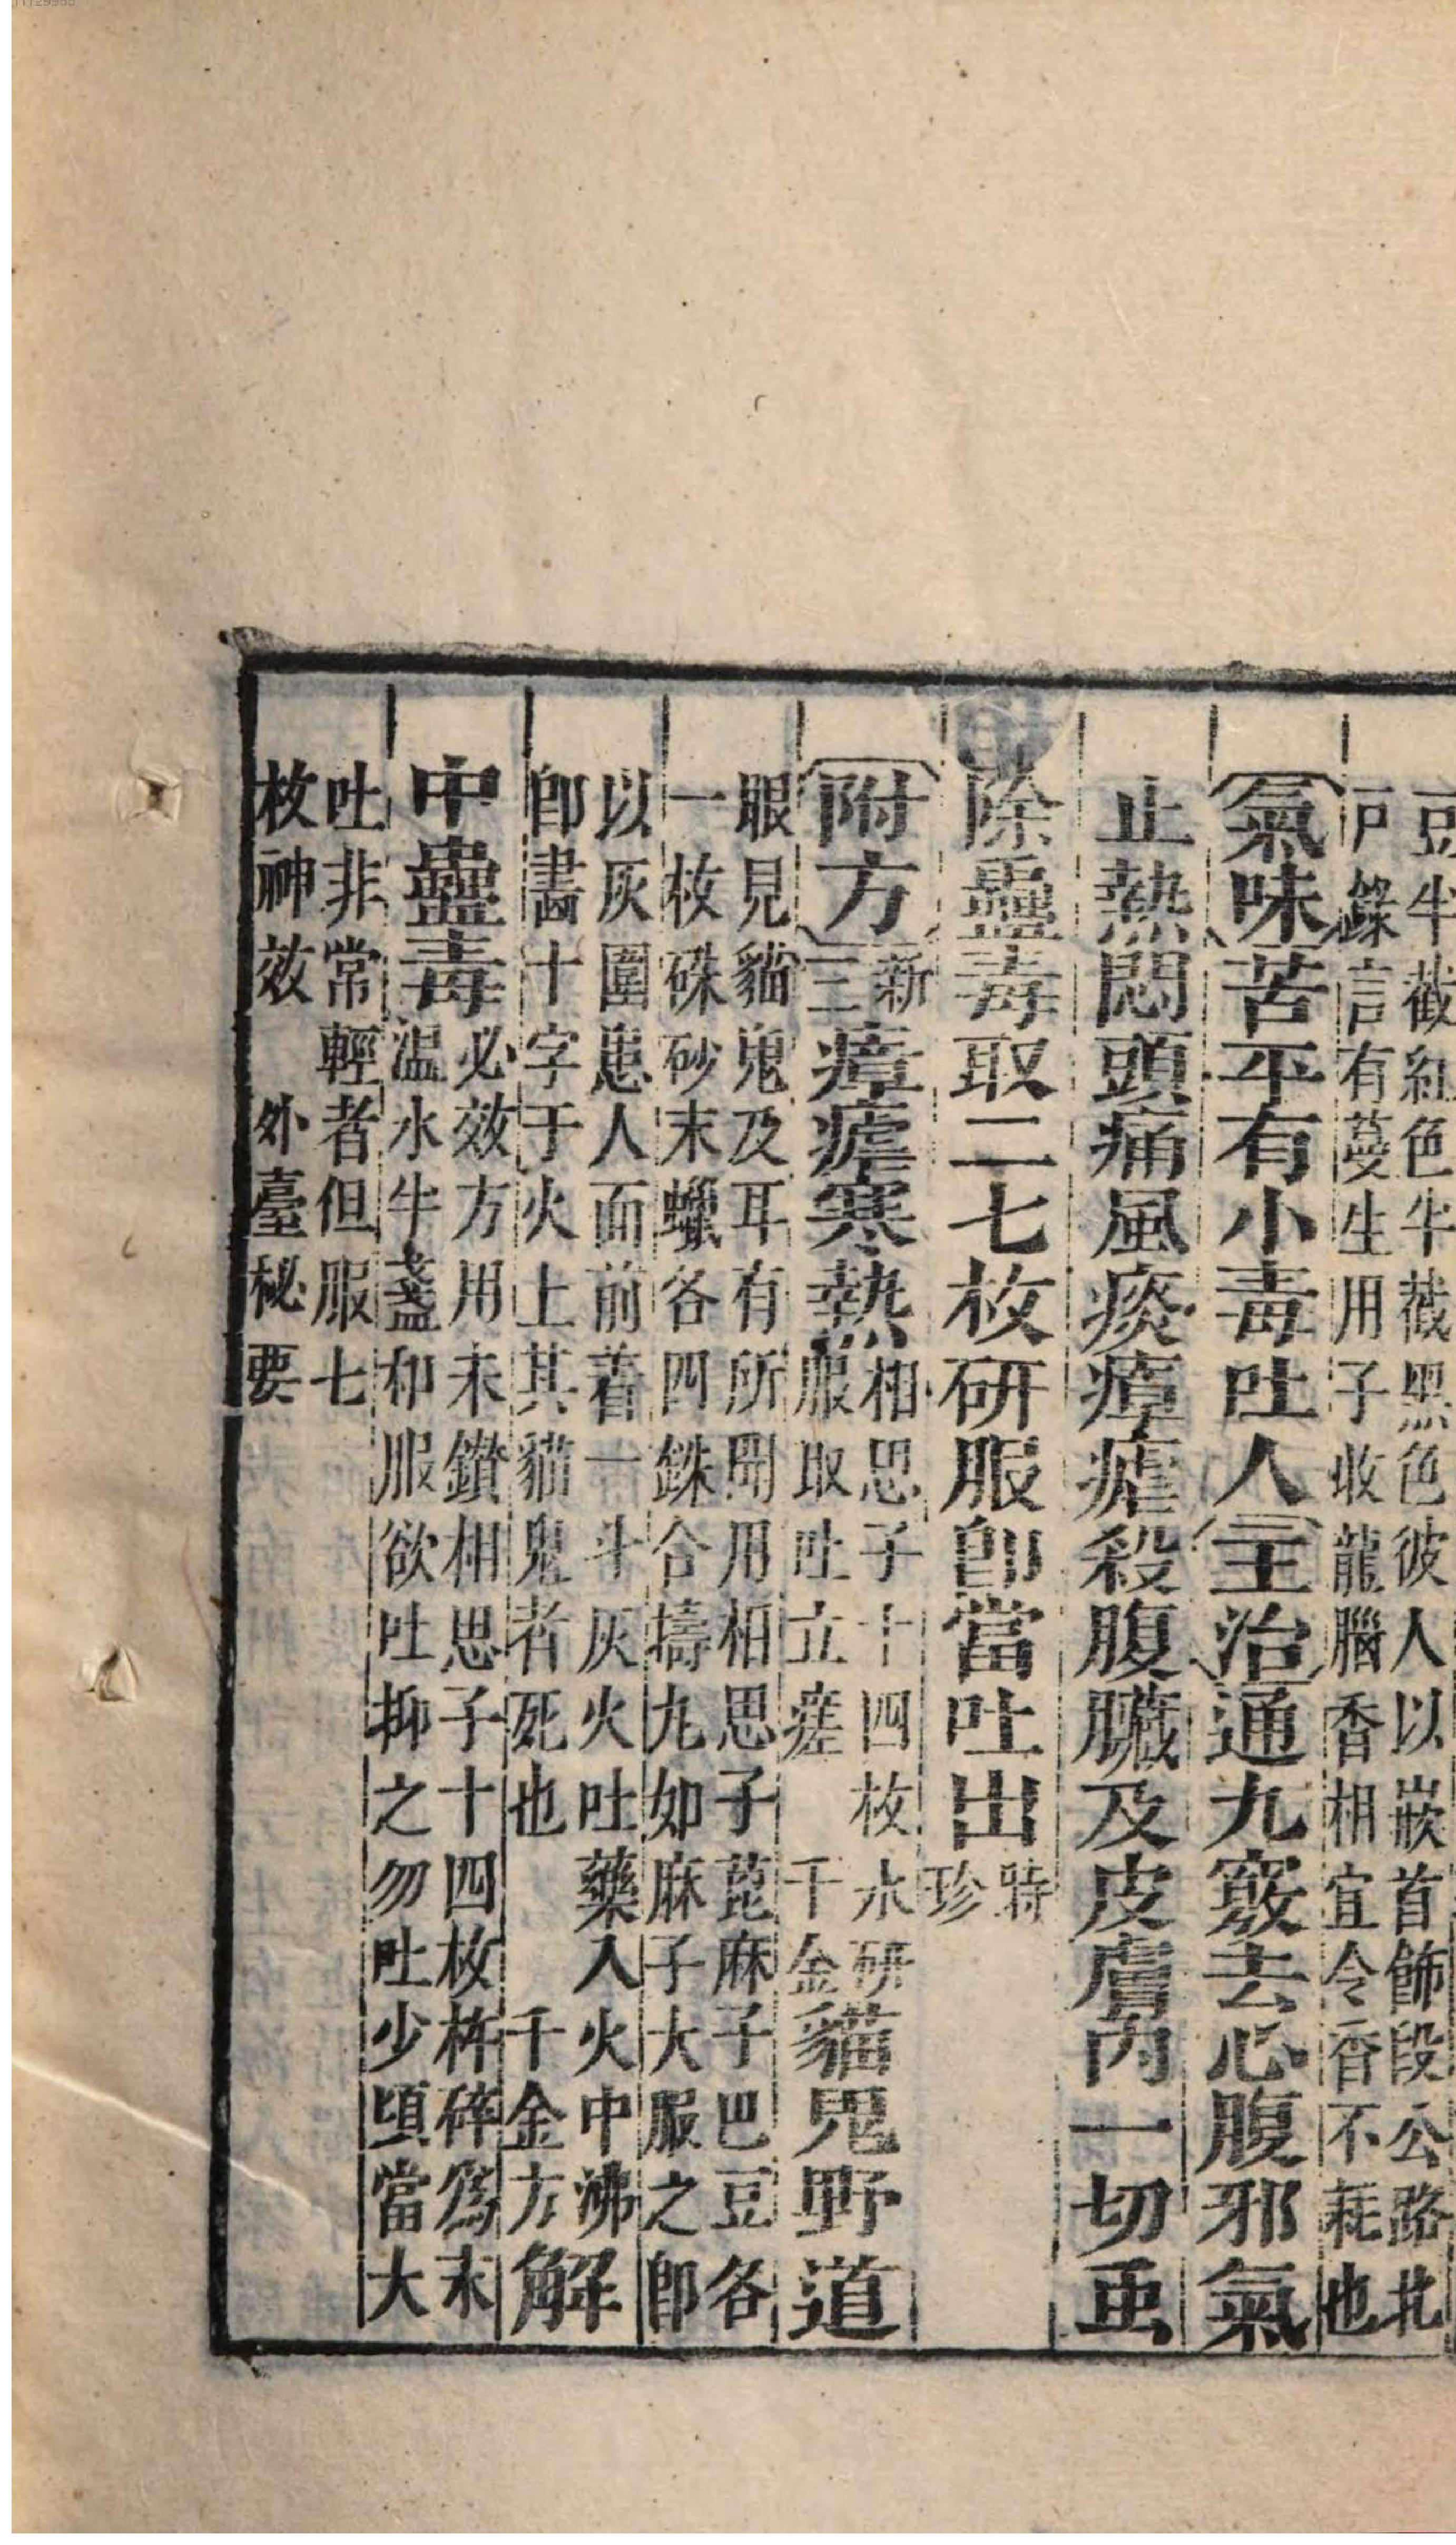 豆半截紅色半截黑色彼人以嵌首飾段公路北
戸錄言有蔓生用子收龍腦香相宜令香不耗也
氣味苦平有小毒吐人主治通九竅去心腹邪氣
止熱悶頭痛風痰瘴瘧殺腹臟及皮膚內一切䖝
除蠱毒取二七枚研服卽當吐出特
珍
附方新
三瘴瘧寒熱相思子十四枚水研
服取吐立瘥 千金貓鬼野道
眼見貓鬼及耳有所聞用相思子蓖麻子巴豆各
一枚硃砂末蠟各四銖合擣丸如麻子大服之卽
以灰圍患人面前着一斗灰火吐藥入火中沸
卽畵十字于火上其貓鬼者死也 千金方解
中蠱毒必效方用未鑽相思子十四枚杵碎爲末
温水半盞和服欲吐抑之勿吐少頃當大
吐非常輕者但服七
枚神效 外臺秘要